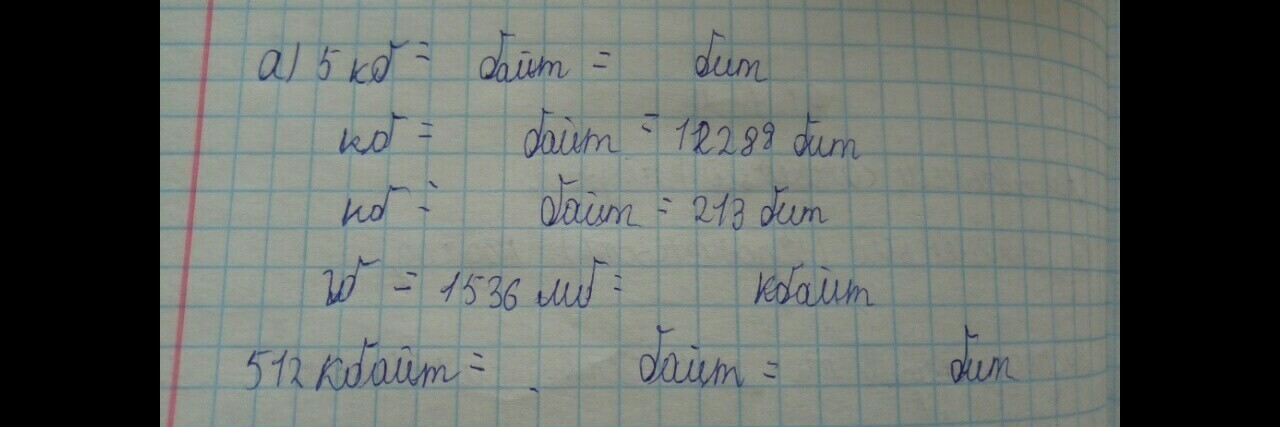 а) 5 кб = байт = бит
кб = байт = 12288 бит
кб = байт = 213 бит
гб = 1536 мб = кбайт
512 кбайт = байт = бит